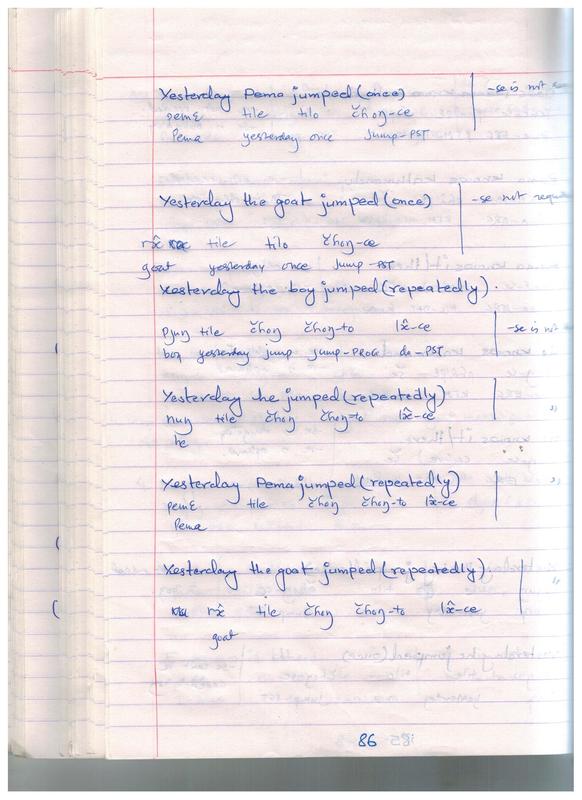 Yesterday Pema jumped (once) -se is not
pemɛ tile tilo čhoŋ-ce
Pema yesterday once jump-PST
Yesterday the goat jumped (once) -se not
rɤ̂ tile tilo čhoŋ-ce
goat yesterday once jump-PST
Yesterday the boy jumped (repeatedly).
pjuŋ tile čhoŋ čhoŋ-to lɤ̂-ce -se is not
boy yesterday jump jump-PROG do-PST
Yesterday he jumped (repeatedly)
nuŋ tile čhoŋ čhoŋ-to lɤ̂-ce "
he
Yesterday Pema jumped (repeatedly) "
pemɛ tile čhoŋ čhoŋ-to lɤ̂-ce
Pema
Yesterday the goat jumped (repeatedly) "
rɤ̂ tile čhoŋ čhoŋ-to lɤ̂-ce
goat
86